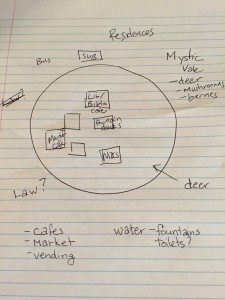 Residences
Bus
SUB
Mystic
Vale
- deer
- mushrooms
- berries
Lib/
Biblio
cafe
Pumpkin
ducks
Market
cafe
Wks
Law?
deer
- cafes
- Market
- vending
water - fountains
toilets?